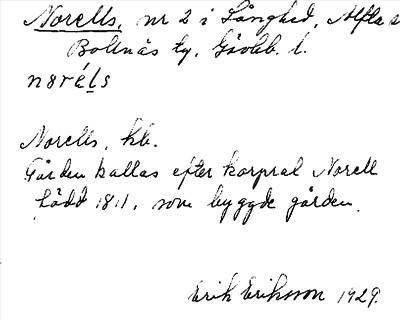 Norells, nr 2 i Långhed, Alfta s
Bollnäs tg. Gävleb. l.
noréls
Norells, hb.
Gården kallas efter korpral Norell
född 1811, som byggde gården.
Erik Eriksson 1929.